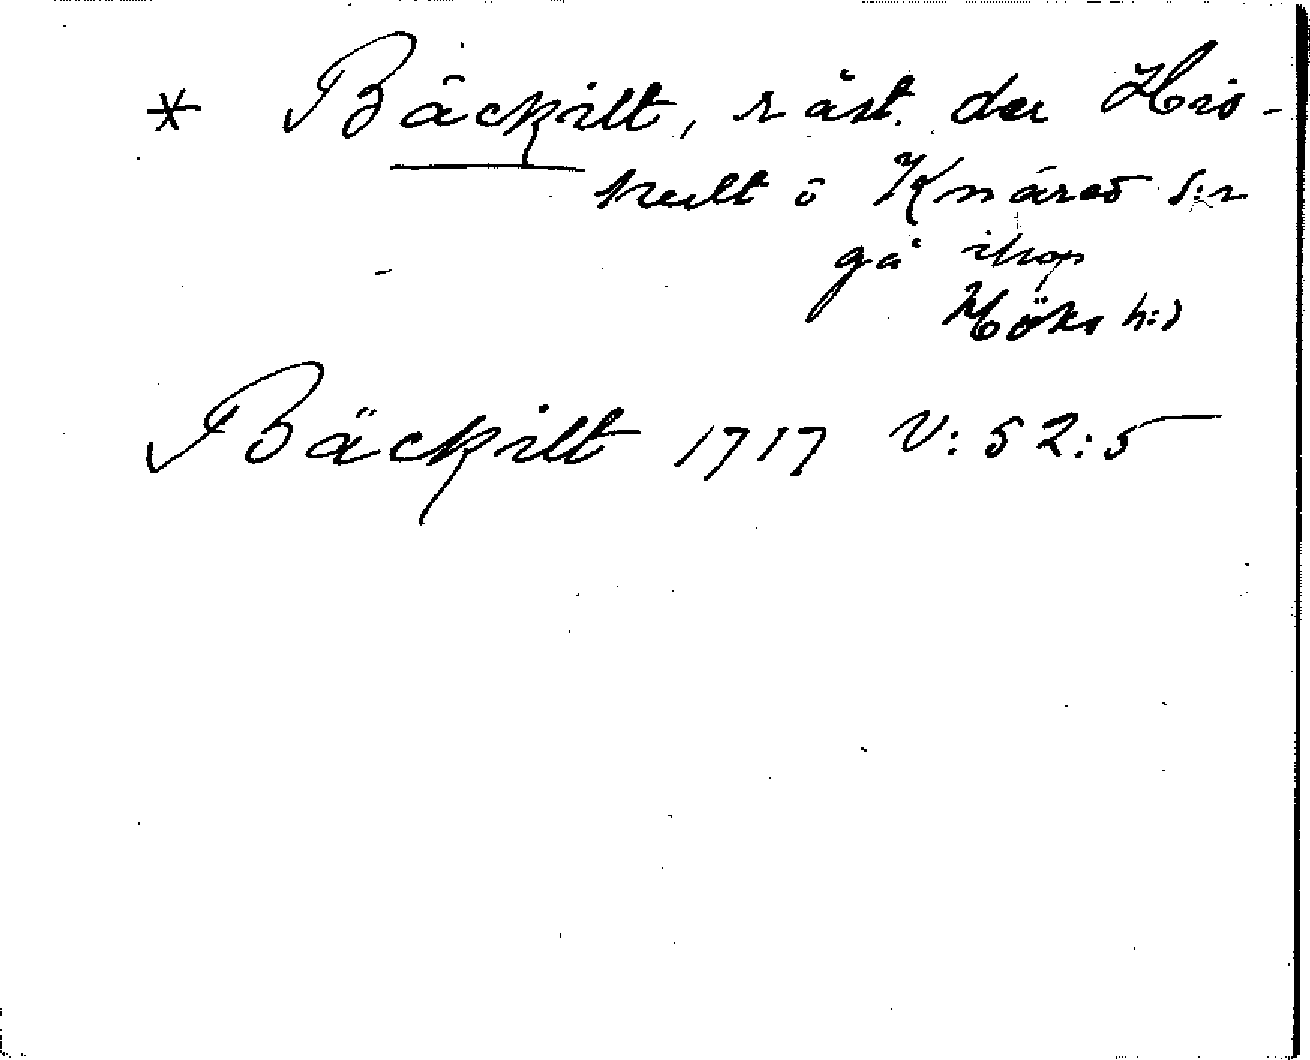 * Bäckilt, råst. der His-
hult o Knäred s:r
gå ihop
Höks h:d
Bäckilt 1717 V:52:5